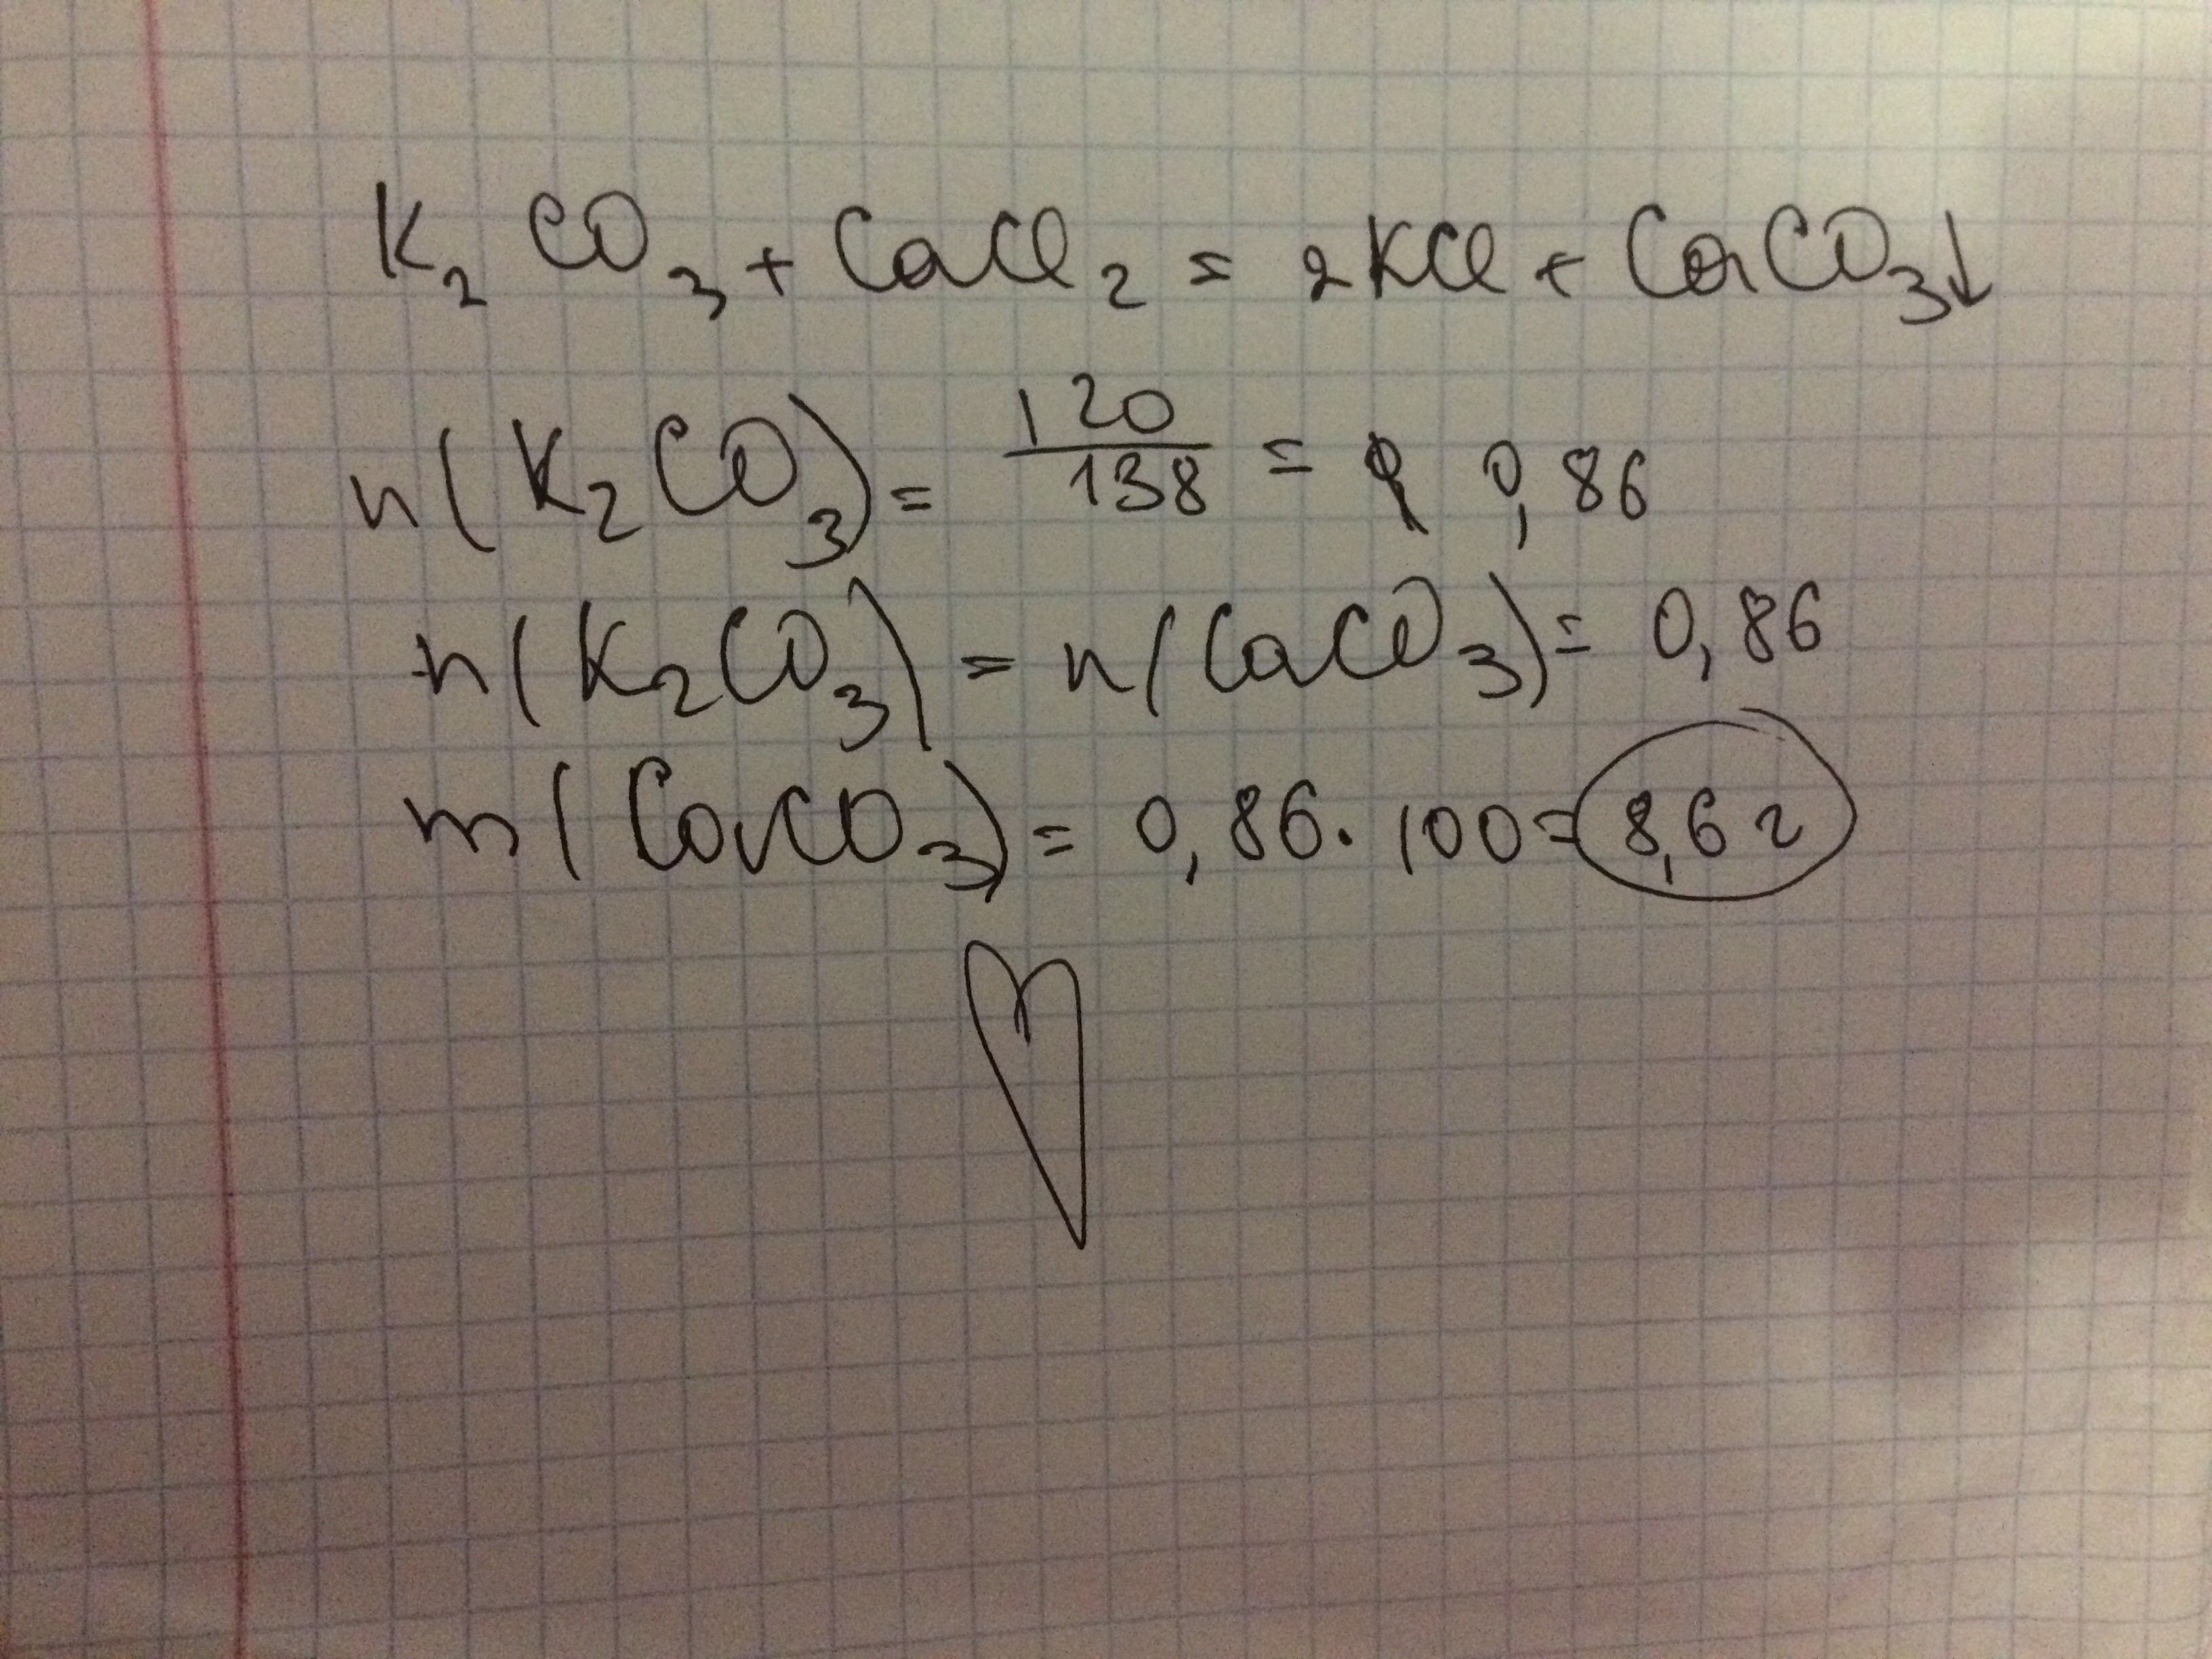 K₂CO₃ + CaCl₂ = 2KCl + CaCO₃↓
n(K₂CO₃) = 120/138 = 0,86
n(K₂CO₃) = n(CaCO₃) = 0,86
m(CaCO₃) = 0,86 · 100 = 8,6 г